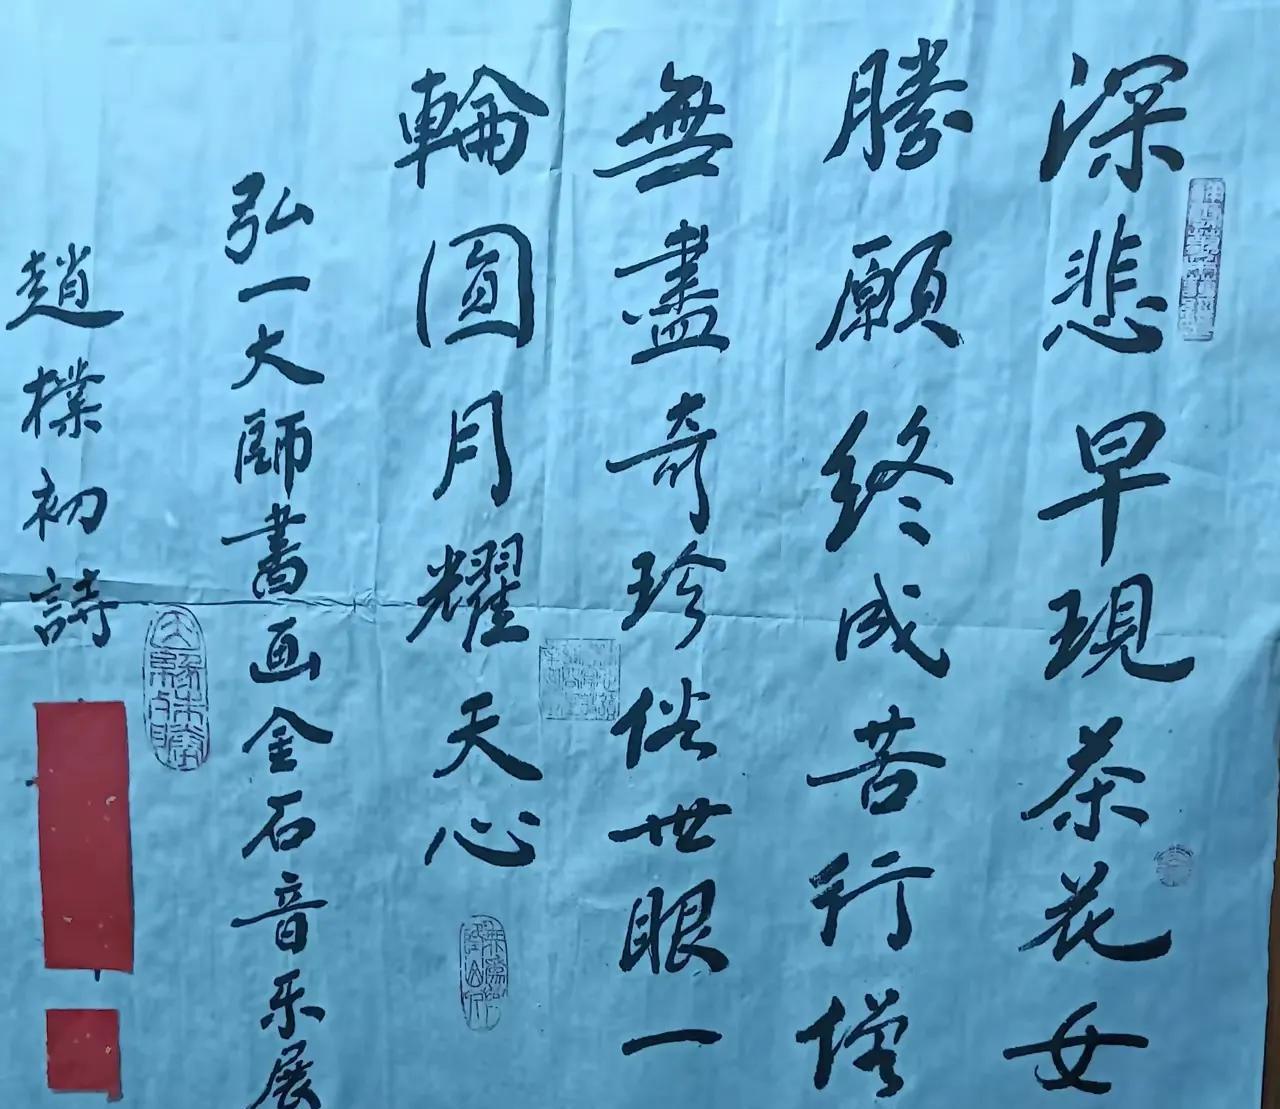 深悲早現茶花女
勝願終成苦行僧
無盡奇珍俗世眼一
輪圓月耀天心
弘一大師書画金石音乐展
趙樸初詩